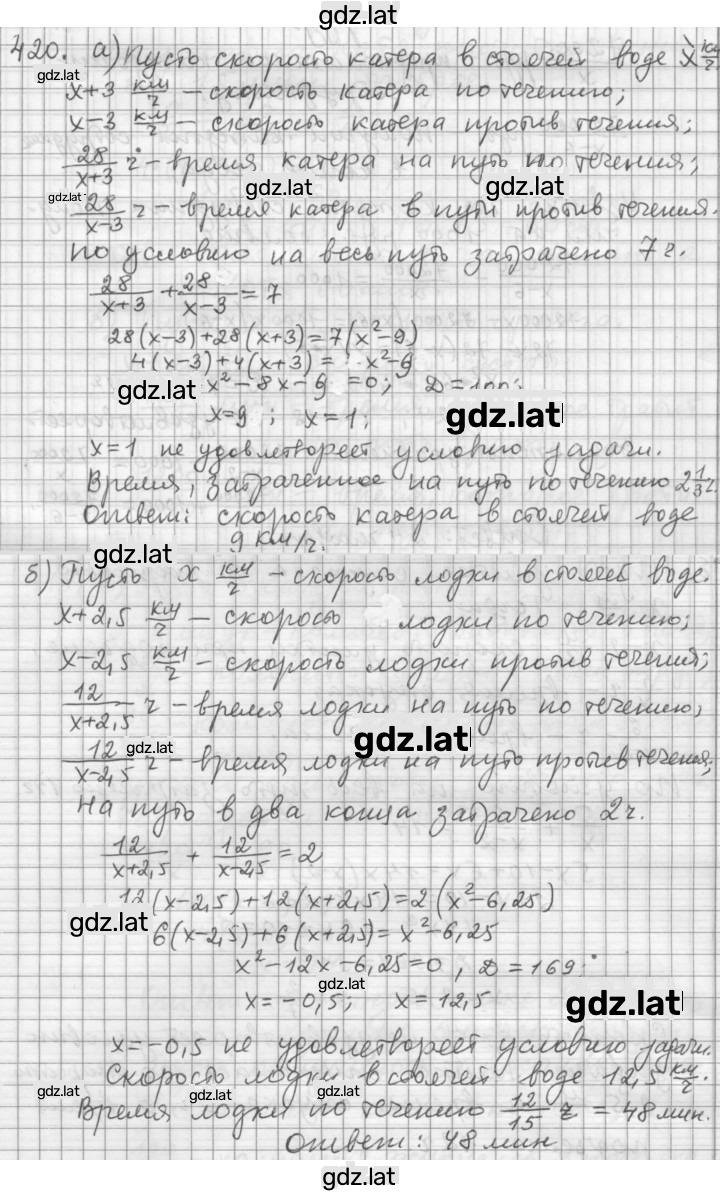 gdz.lat
420. а) Пусть скорость катера в стоячей воде x км/ч
gdz.lat
x+3 км/ч – скорость катера по течению;
x-3 км/ч – скорость катера против течения;
28/(x+3) ч – время катера на путь по течения;
gdz.lat gdz.lat gdz.lat
28/(x-3) ч – время катера в пути против течения.
По условию на весь путь затрачено 7 ч.
28/(x+3) + 28/(x-3) = 7
28(x-3)+28(x+3)=7(x²-9)
4(x-3)+4(x+3) = x²-9
gdz.lat x²-8x-9 =0; D=100;
x=9; x=1; gdz.lat
x=1 не удовлетвореет условию задачи.
Время, затраченное на путь по течению 2 1/3 ч.
Ответ: скорость катера в стоячей воде
9 км/ч.
gdz.lat
б) Пусть x км/ч – скорость лодки в стоячей воде.
x+2,5 км/ч – скорость лодки по течению;
x-2,5 км/ч – скорость лодки против течения;
12/(x+2,5) ч – время лодки на путь по течению;
gdz.lat gdz.lat
12/(x-2,5) ч – время лодки на путь против течения;
На путь в два конца затрачено 2 ч.
12/(x+2,5) + 12/(x-2,5) = 2
12(x-2,5)+12(x+2,5)=2(x²-6,25)
gdz.lat
6(x-2,5)+6(x+2,5)=x²-6,25
x²-12x-6,25=0, D=169;
gdz.lat
x=-0,5; x=12,5 gdz.lat
x=-0,5 не удовлетвореет условию задачи.
Скорость лодки в стоячей воде 12,5 км/ч.
gdz.lat gdz.lat gdz.lat gdz.lat
Время лодки по течению 12/15 ч = 48 мин.
Ответ: 48 мин
gdz.lat